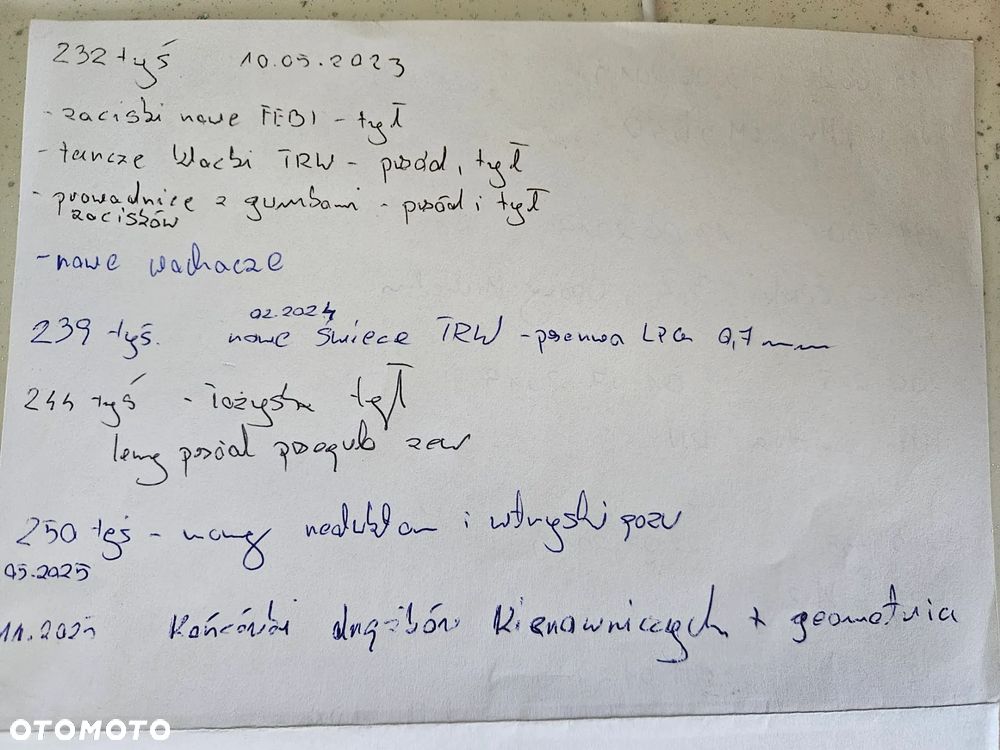 232 tyś 10.05.2023
- zaciski nowe FEBI - tył
- tarcze klocki TRW - przód, tył
- prowadnice z gumkami - przód i tył
zacisków
- nowe wachacze
02.2024
239 tyś. nowe świece TRW - przerwa LPG 0,7 mm
244 tyś - łożyska tył
lewy przód przegub zew
250 tyś - nowy reduktor i wtryski gazu
05.2025
11.2025 Końcówki drążków kierowniczych + geometria
OTOMOTO